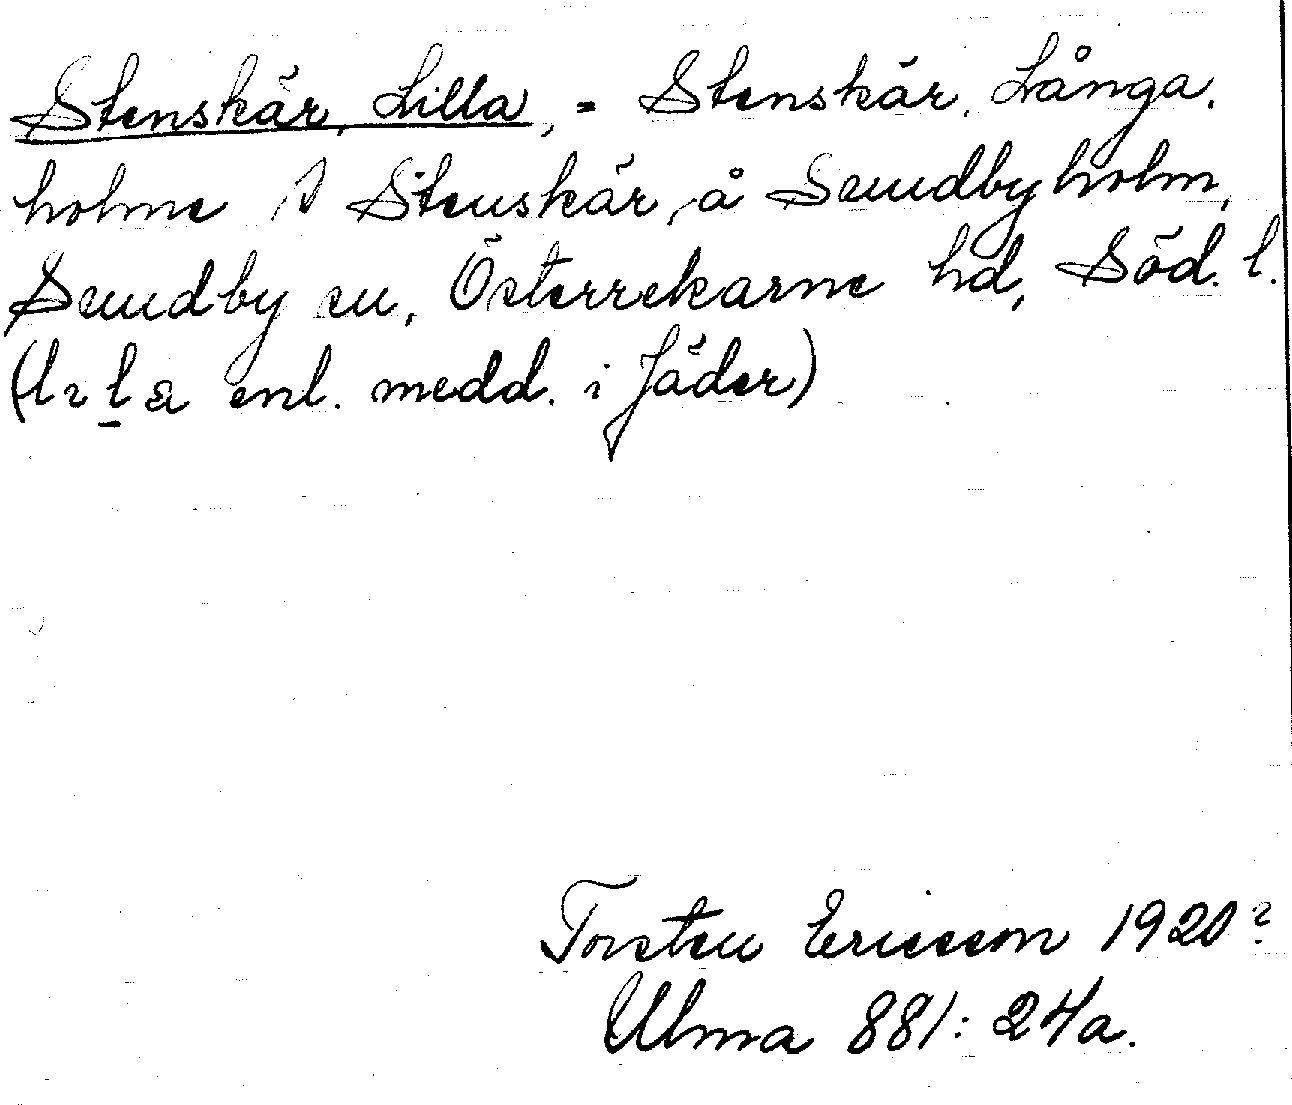 Stenskär, Lilla, = Stenskär, Långa.
holme N Stenskär, å Sundbyholm,
Sundby sn, Österrekarne hd, Söd. l.
( enl. medd. i Jäder)
Torsten Ericsson 1920?
Ulma 881: 24a.